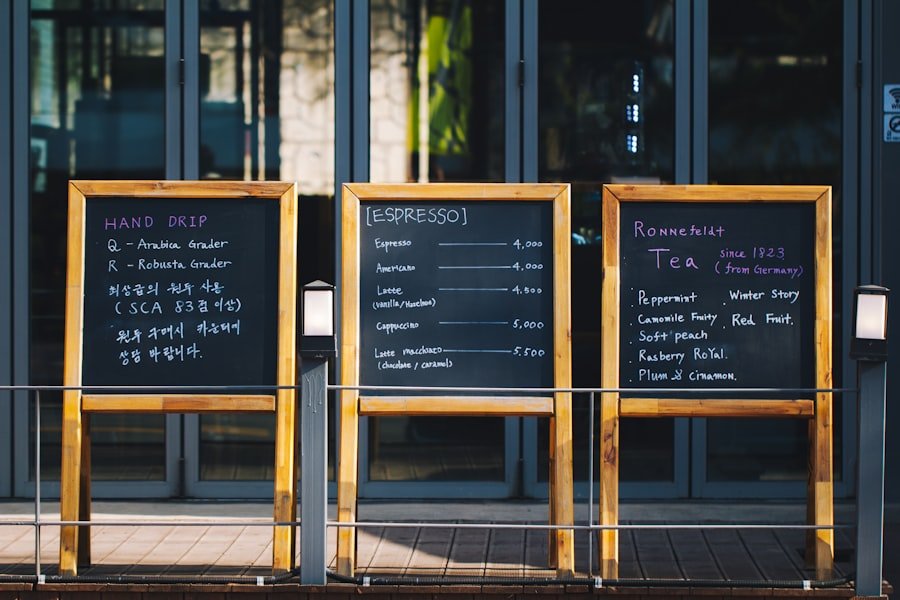 HAND DRIP
Q - Arabica Grader
R - Robusta Grader
최상급의 원두 사용
(SCA 83점 이상)
원두 구매시 카운터에
상담 바랍니다.
[ESPRESSO]
Espresso 4,000
Americano 4,000
Latte 4,500
(vanilla/Hazelnut)
Cappuccino 5,000
Latte macchiato 5,500
(chocolate / caramel)
Ronnefeldt
Tea since 1823
(from Germany)
. Peppermint . Winter Story
. Camomile Fruity . Red Fruit.
. Soft peach
. Rasberry Royal.
. Plum & cinamon.